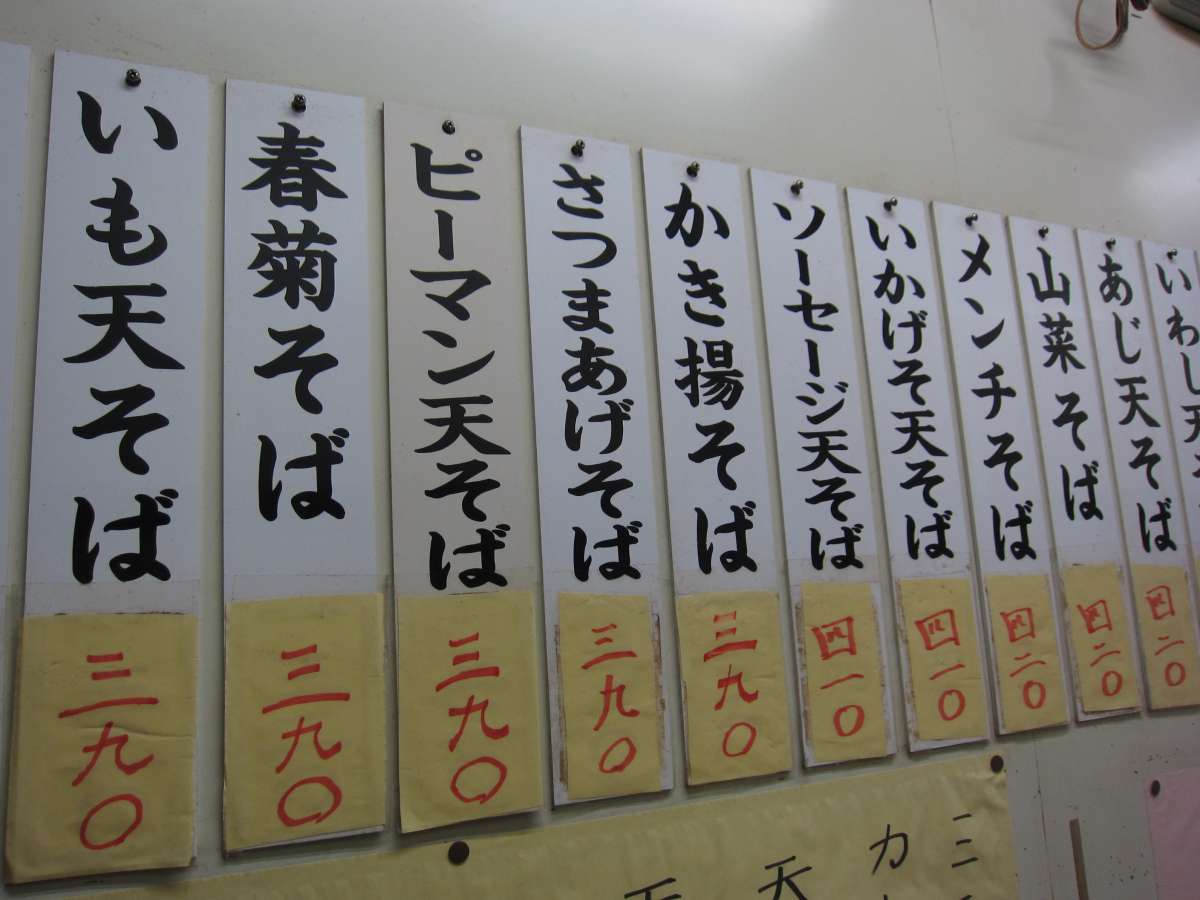 いも天そば
三九〇
春菊そば
三九〇
ピーマン天そば
三九〇
さつまあげそば
三九〇
かき揚そば
三九〇
ソーセージ天そば
四一〇
いかげそ天そば
四一〇
メンチそば
四二〇
山菜そば
四二〇
あじ天そば
四二〇
いわし天
天
天
カ
ミ